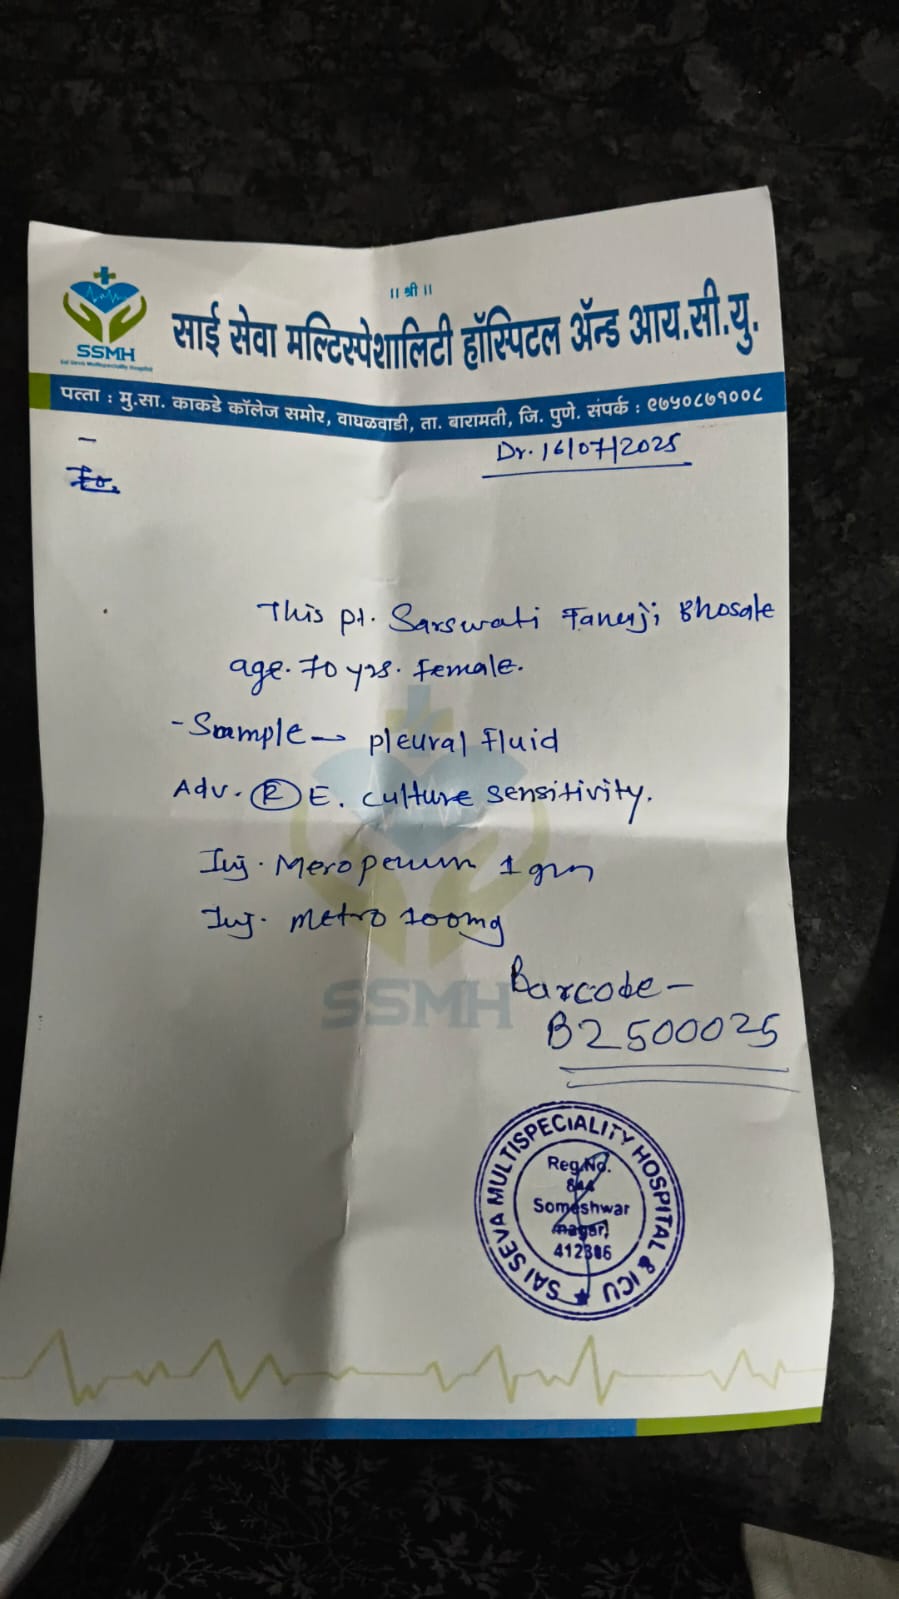 ॥ श्री ॥
साई सेवा मल्टिस्पेशालिटी हॉस्पिटल ॲन्ड आय.सी.यु.
SSMH
Sai Seva Multispeciality Hospital
पत्ता : मु.सा. काकडे कॉलेज समोर, वाघळवाडी, ता. बारामती, जि. पुणे. संपर्क : ९७५०८७१००८
Dr. 16/07/2025
To,
This pt. Sarswati Tanaji Bhosale
age. 70 yrs. Female.
- Sample → pleural fluid
Adv. R E. culture sensitivity.
Inj. Meropenum 1 gm
Inj. metro 100mg
Barcode -
B2500025
SSMH
SAI SEVA MULTISPECIALITY HOSPITAL & ICU
Reg.No.
844
Someshwar
nagar,
412306